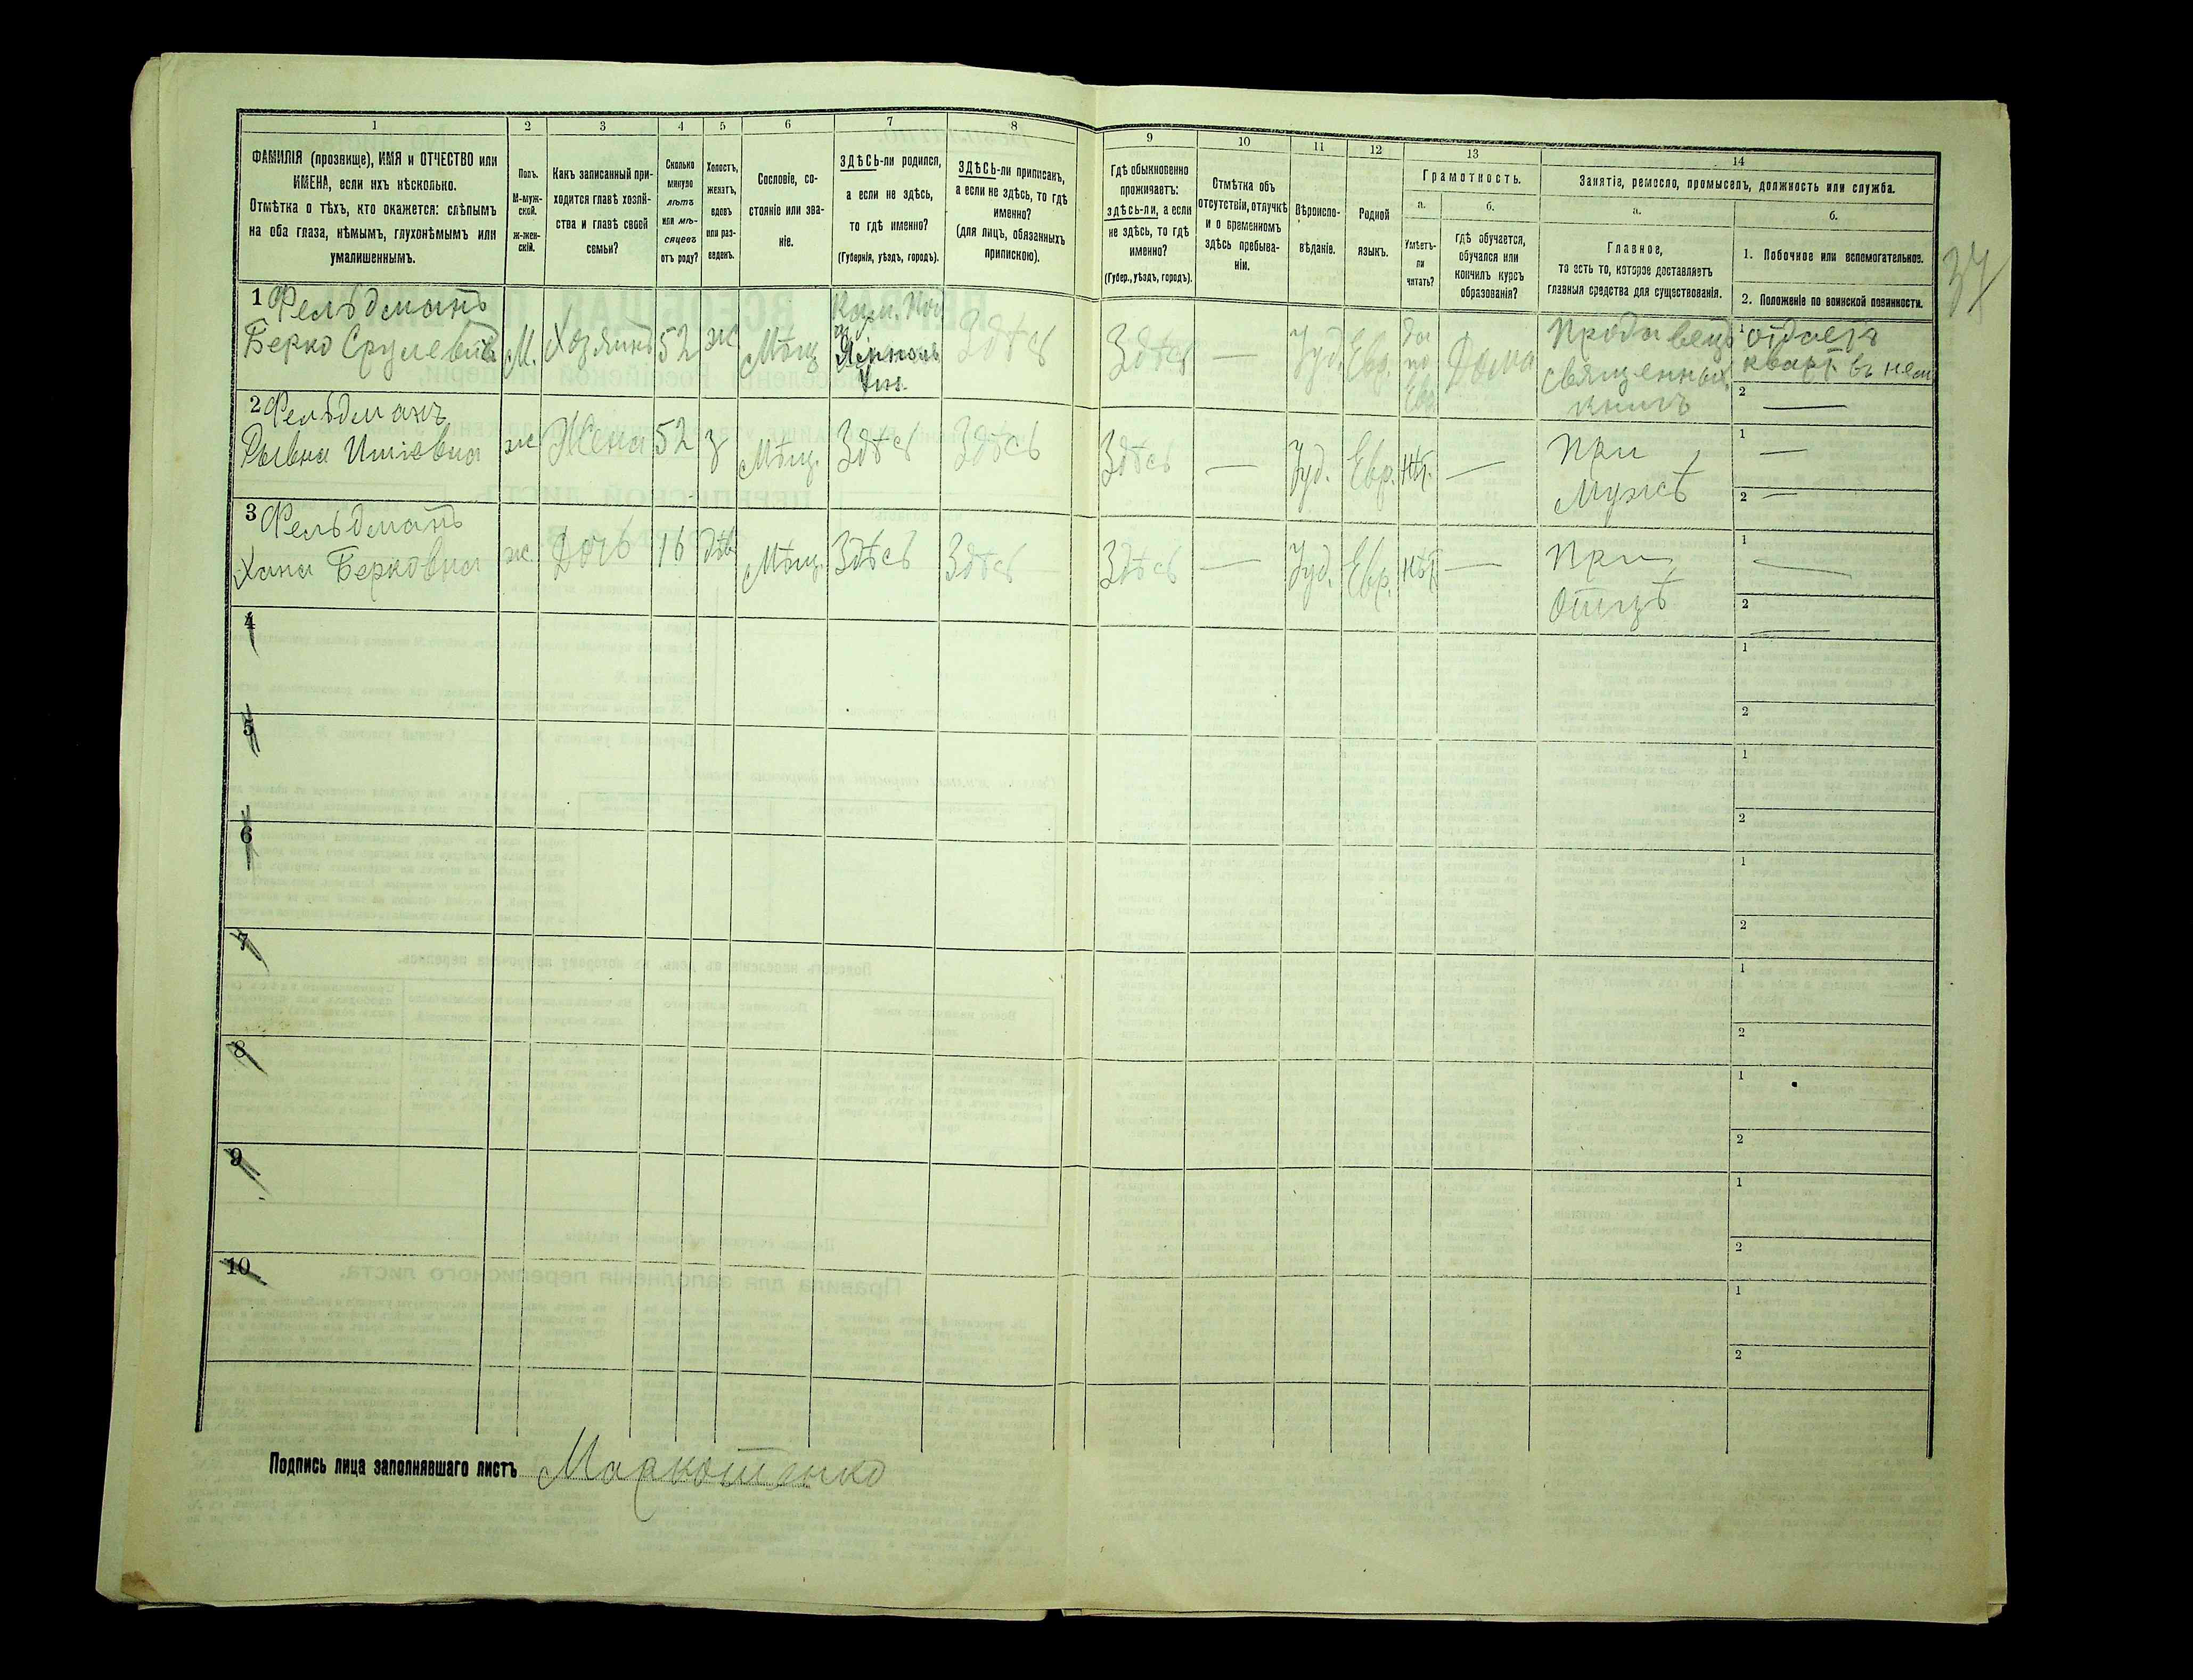 1 2 3 4 5 6 7 8 9 10 11 12 13 14
ФАМИЛІЯ (прозвище), ИМЯ и ОТЧЕСТВО или
ИМЕНА, если ихъ нѣсколько.
Отмѣтка о тѣхъ, кто окажется: слѣпымъ
на оба глаза, нѣмымъ, глухонѣмымъ или
умалишеннымъ.
Полъ.
М-муж-
ской.
ж-жен-
скій.
Какъ записанный при-
ходится главѣ хозяй-
ства и главѣ своей
семьи?
Сколько
минуло
лѣтъ
или мѣ-
сяцевъ
отъ роду?
Холостъ,
женатъ,
вдовъ
или раз-
веденъ.
Сословіе, со-
стояніе или зва-
ніе.
ЗДѢСЬ-ли родился,
а если не здѣсь,
то гдѣ именно?
(Губернія, уѣздъ, городъ).
ЗДѢСЬ-ли приписанъ,
а если не здѣсь, то гдѣ
именно?
(для лицъ, обязанныхъ
припискою).
Гдѣ обыкновенно
проживаетъ:
здѣсь-ли, а если
не здѣсь, то гдѣ
именно?
(Губер., уѣздъ, городъ).
Отмѣтка объ
отсутствіи, отлучкѣ
и о временномъ
здѣсь пребыва-
ніи.
Вѣроиспо-
вѣданіе.
Родной
языкъ.
Грамотность.
а.
Умѣетъ-
ли
читать?
б.
гдѣ обучается,
обучался или
кончилъ курсъ
образованія?
Занятіе, ремесло, промыселъ, должность или служба.
а.
Главное,
то есть то, которое доставляетъ
главныя средства для существованія.
б.
1. Побочное или вспомогательное.
2. Положеніе по воинской повинности.
37
1 Фельдманъ
Берко Срулевичъ
М.
Хозяинъ
52
ж
Мѣщ.
Кам. Под.
Ямполь
Здѣсь
Здѣсь
—
Іуд.
Евр.
да
по
Евр
Дома
Продавецъ
священныхъ
книгъ
1 отдаетъ
кварт. въ наем
2 —
2 Фельдманъ
Рывка Ишіевна
ж
Жена
52
з
Мѣщ.
Здѣсь
Здѣсь
Здѣсь
—
Іуд.
Евр.
нѣт.
—
При
Мужѣ
1 —
2 —
3 Фельдманъ
Хана Берковна
ж.
Дочь
16
дѣв
Мѣщ.
Здѣсь
Здѣсь
Здѣсь
—
Іуд.
Евр.
нѣт
—
При
Отцѣ
1 —
2 —
4
1
2
5
1
2
6
1
2
7
1
2
8
1
2
9
1
2
10
1
2
Подпись лица заполнявшаго листъ Маркотенко